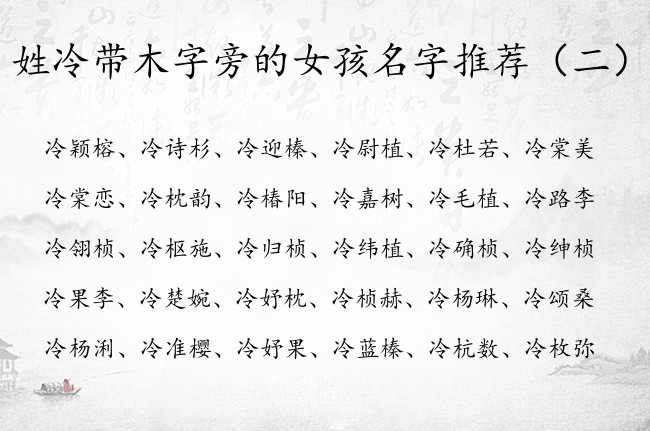 姓冷带木字旁的女孩名字推荐（二）
冷颖榕、冷诗杉、冷迎榛、冷尉植、冷杜若、冷棠美
冷棠恋、冷枕韵、冷椿阳、冷嘉树、冷毛植、冷路李
冷翎桢、冷枢施、冷归桢、冷纬植、冷确桢、冷绅桢
冷果李、冷楚婉、冷妤枕、冷桢赫、冷杨琳、冷颂桑
冷杨浰、冷准樱、冷妤果、冷蓝榛、冷杭数、冷枚弥